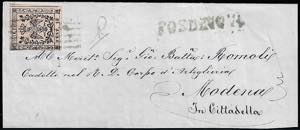 FOSDINOVO
All' Merit.o Sig.r Gio. Batta Romoli
Cadetto nel R. D. Corpo d'Artiglieria
Modena
In Cittadella